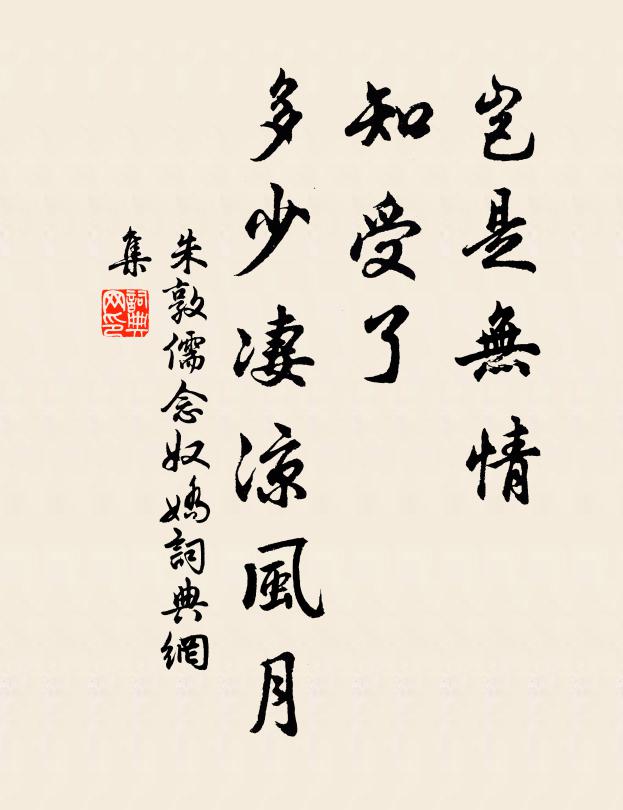 豈是無情
知受了
多少淒涼風月
朱敦儒念奴嬌詞典網
集
詞典
网印